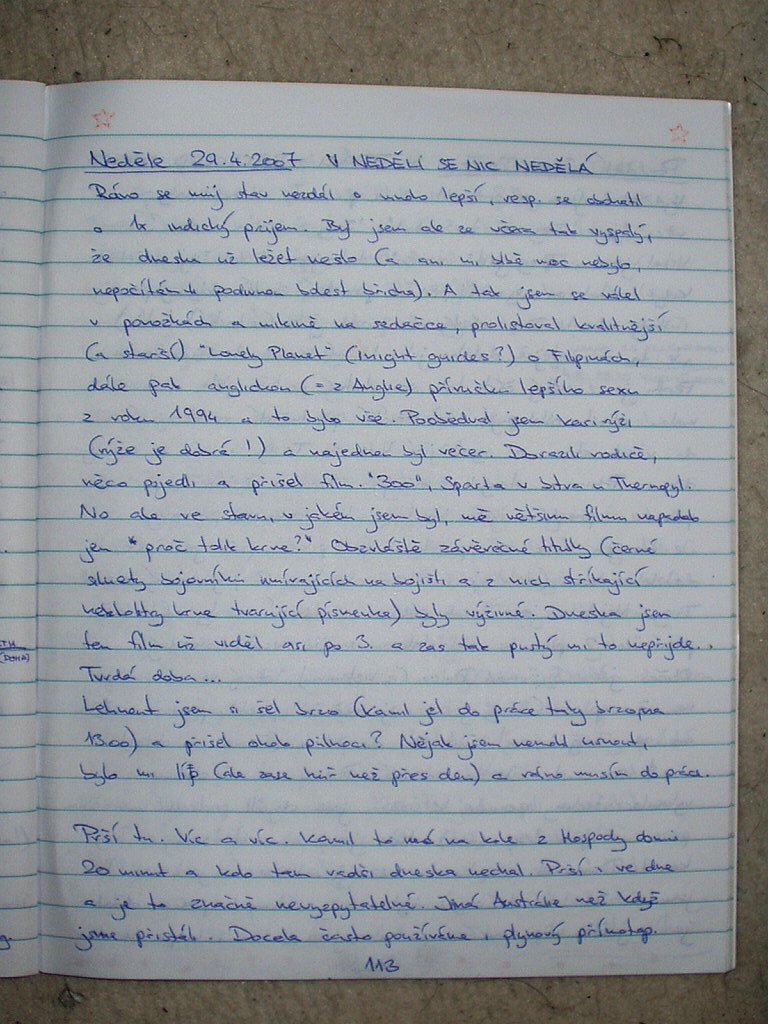 Neděle 29.4.2007 V NEDĚLI SE NIC NEDĚLÁ
Ráno se můj stav nezdál o mnoho lepší, resp. se obohatil
o 1x indický příjem. Byl jsem ale ze včera tak vyspalý,
že dneska už ležet nešlo (a ani mi blbě moc nebylo,
nepočítám-li podivnou bolest břicha). A tak jsem se válel
v ponožkách a mikině na sedačce, prolistoval kvalitnější
(a starší) "Lonely Planet" (Insight guides?) o Filipínách,
dále pak anglickou (= z Anglie) příručku lepšího sexu
z roku 1994 a to bylo vše. Poobědval jsem kari rýži
(rýže je dobrá!) a najednou byl večer. Dorazili rodiče,
něco pojedli a přišel film. "300", Sparta v bitva u Thermopyl.
No ale ve stavu, v jakém jsem byl, mě většinu filmu napadalo
jen "proč tolik krve?" Obzvláště závěrečné titulky (černé
siluety bojovníků umírajících na bojišti a z nich stříkající
krve tvarující písmenka) byly výživné. Dneska jsem
ten film už viděl asi po 3. a zas tak pustý mi to nepřijde..
Tvrdá doba...
Lehnout jsem si šel brzo (Kamil jel do práce taky brzo na
1300) a přišel okolo půlnoci? Nějak jsem nemohl usnout,
bylo mi líp (ale zase hůř než přes den) a ráno musím do práce.
Prší tu. Víc a víc. Kamil to má na kole z Hospody domů
20 minut a kolo tam radši dneska nechal. Prší i ve dne
a je to značně nevyzpytatelné. Jiná Austrálie než když
jsme přistáli. Docela často používáme i plynový přímotop.
113
TH
(DOMA)
g.